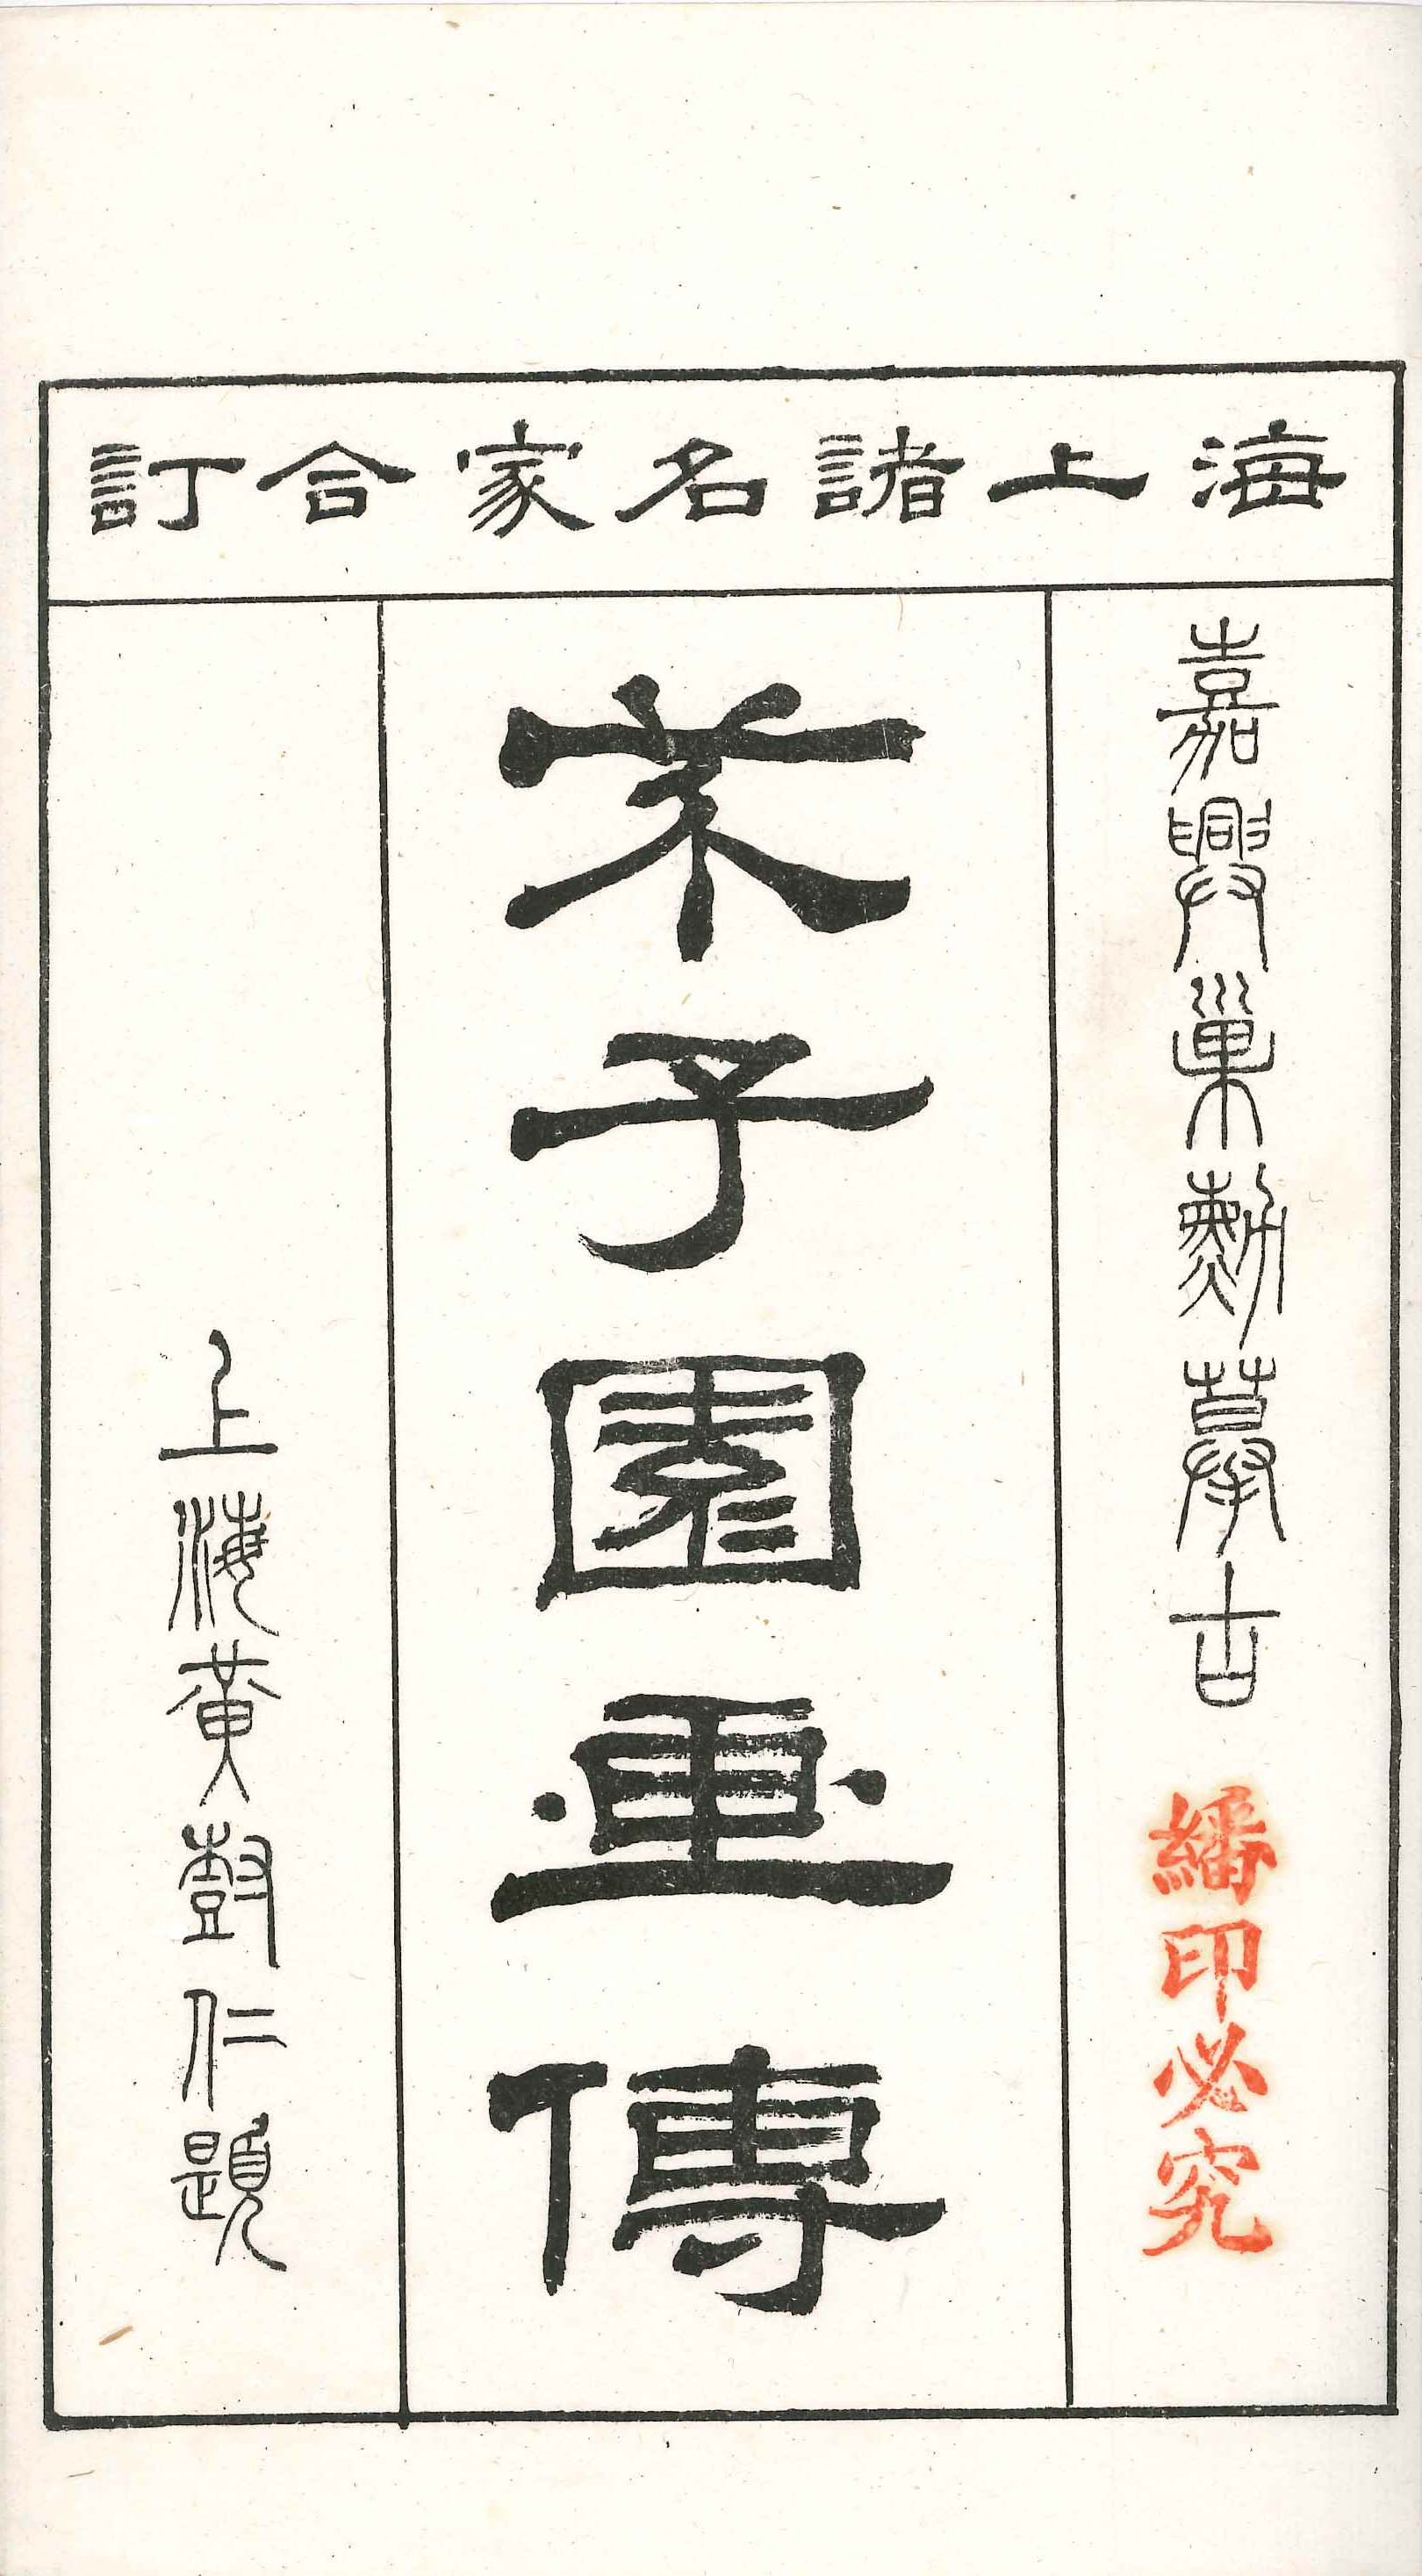 海上諸名家合訂
嘉興巢勳摹古
繙印必究
芥子園畫傳
上海黃尌仁題